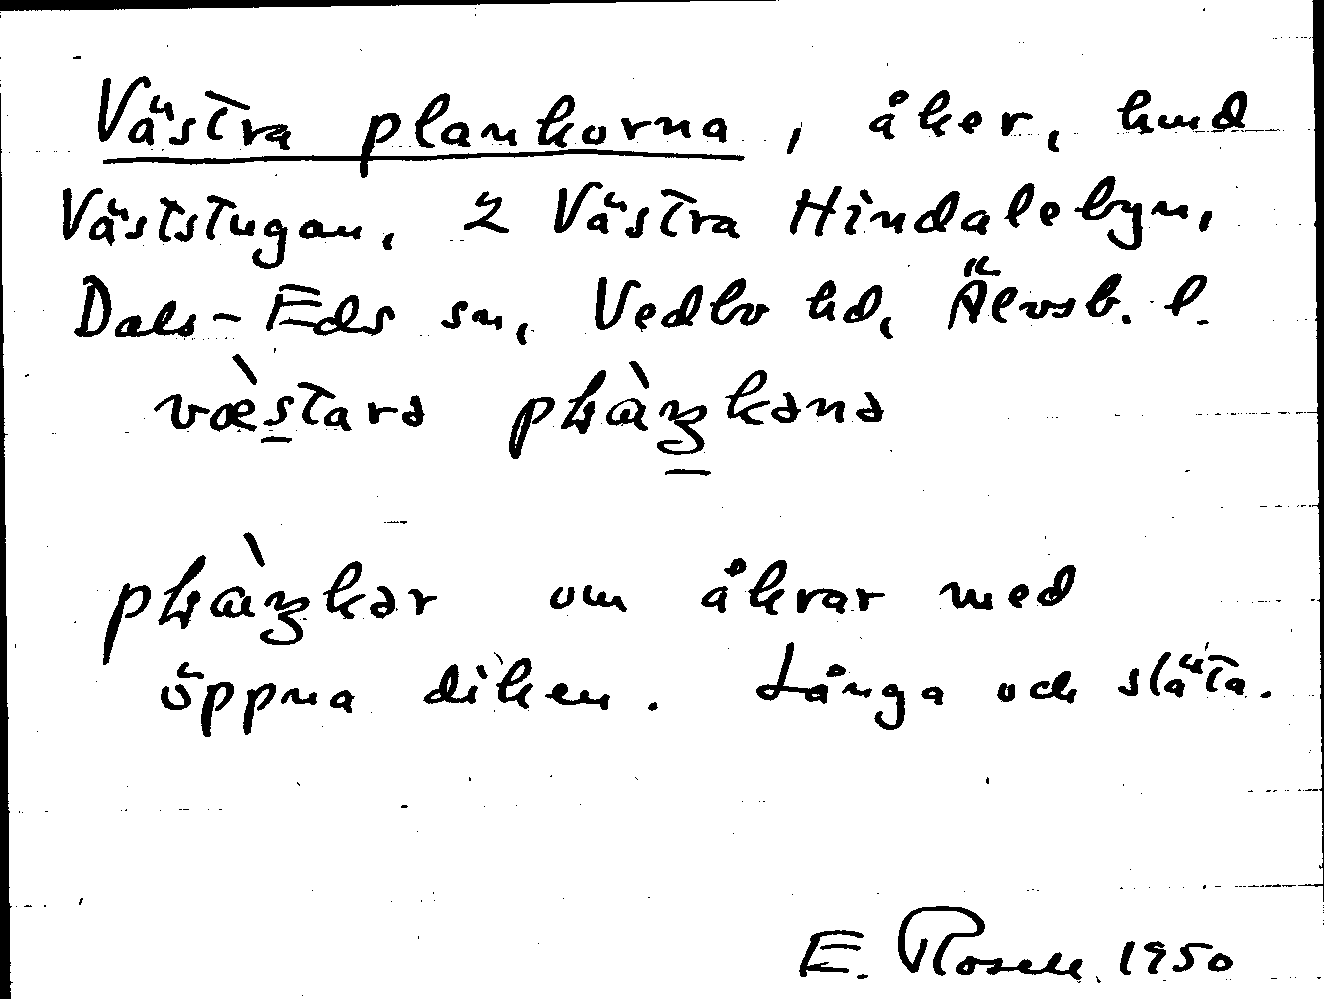 Västra plankorna, åker, hmd
Väststugan, 2 Västra Hindalebyn,
Dals-Eds sn, Vedbo hd, Älvsb. l.
om åkrar med
öppna diken. Långa och släta.
E. Rosell 1950